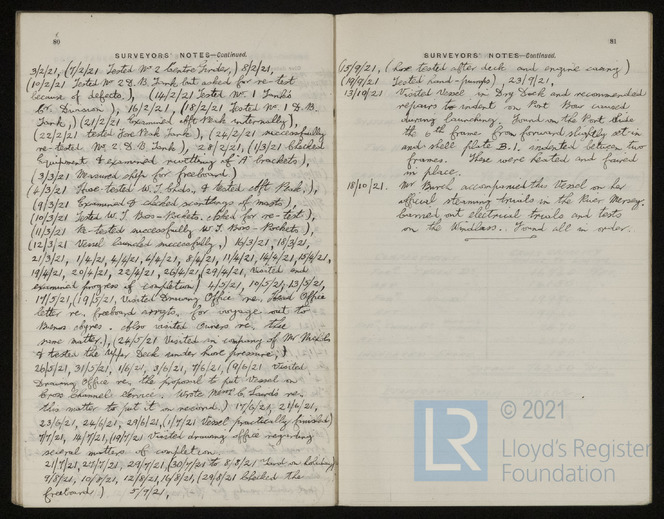 80
SURVEYORS' NOTES—Continued.
3/2/21, (7/2/21 Tested No 2 Centre Tender,) 8/2/21,
(10/2/21 Tested No 2 D.B. Tank but asked for re-test
because of defects.), (14/2/21 Tested No 1 Tank
16/2/21, (18/2/21 Tested No. 1 D.B.
Tank,) (21/2/21 Examined Aft Peak internally),
(22/2/21 tested Fore Peak Tank), (24/2/21 successfully
re-tested No. 2 D.B. Tank), 28/2/21, (1/3/21 Checked
Equipment & examined rivetting of A brackets),
(3/3/21 Measured ship for freeboard)
(4/3/21 Hose-tested W.T. & tested Aft Peak.),
(9/3/21 Examined & checked scantlings of masts),
(10/3/21 Tested W.T. asked for re-test),
(11/3/21 Re-tested successfully W.T.
(12/3/21 Vessel launched successfully,) 16/3/21, 18/3/21,
21/3/21, 1/4/21, 4/4/21, 6/4/21, 8/4/21, 11/4/21, 14/4/21, 15/4/21,
19/4/21, 20/4/21, 22/4/21, 26/4/21, (29/4/21, Visited and
examined progress of completion) 4/5/21, 10/5/21, 13/5/21,
17/5/21, (19/5/21, Visited Drawing Office re. Head Office
letter re. freeboard for voyage out to
Buenos Ayres. Also visited Owners re. the
same matter.), (24/5/21 Visited in company of Mr
& tested the Upper Deck under hose pressure,)
26/5/21, 31/5/21, 1/6/21, 3/6/21, 7/6/21, (9/6/21 Visited
Drawing Office re. the proposal to put Vessel on
Cross Channel Service. Wrote Messrs C. Lairds re.
this matter to put it on record.) 17/6/21, 21/6/21,
23/6/21, 24/6/21, 29/6/21, (1/7/21 Vessel practically finished)
7/7/21, 14/7/21, (19/7/21 Visited drawing office regarding
several matters of completion.
21/7/21, 22/7/21, 29/7/21, (30/7/21 to 8/8/21 on holiday)
9/8/21, 10/8/21, 12/8/21, 16/8/21, (29/8/21 Checked the
freeboard) 5/9/21,
81
SURVEYORS' NOTES—Continued.
(15/9/21, (hose tested after deck and engine casing)
(19/9/21 Tested hand-pumps), 23/9/21,
13/10/21 Visited Vessel in Dry Dock and recommended
repairs to indent on Port Bow caused
during launching. Found on the Port side
the 6th frame from forward slightly set in
and shell plate B.1. indented between two
frames. These were heated and faired
in place.
18/10/21. Mr Burch accompanied this Vessel on her
official steaming trials in the River Mersey.
Carried out electrical trials and tests
on the Windlass. Found all in order.
LR
© 2021
Lloyd's Register
Foundation